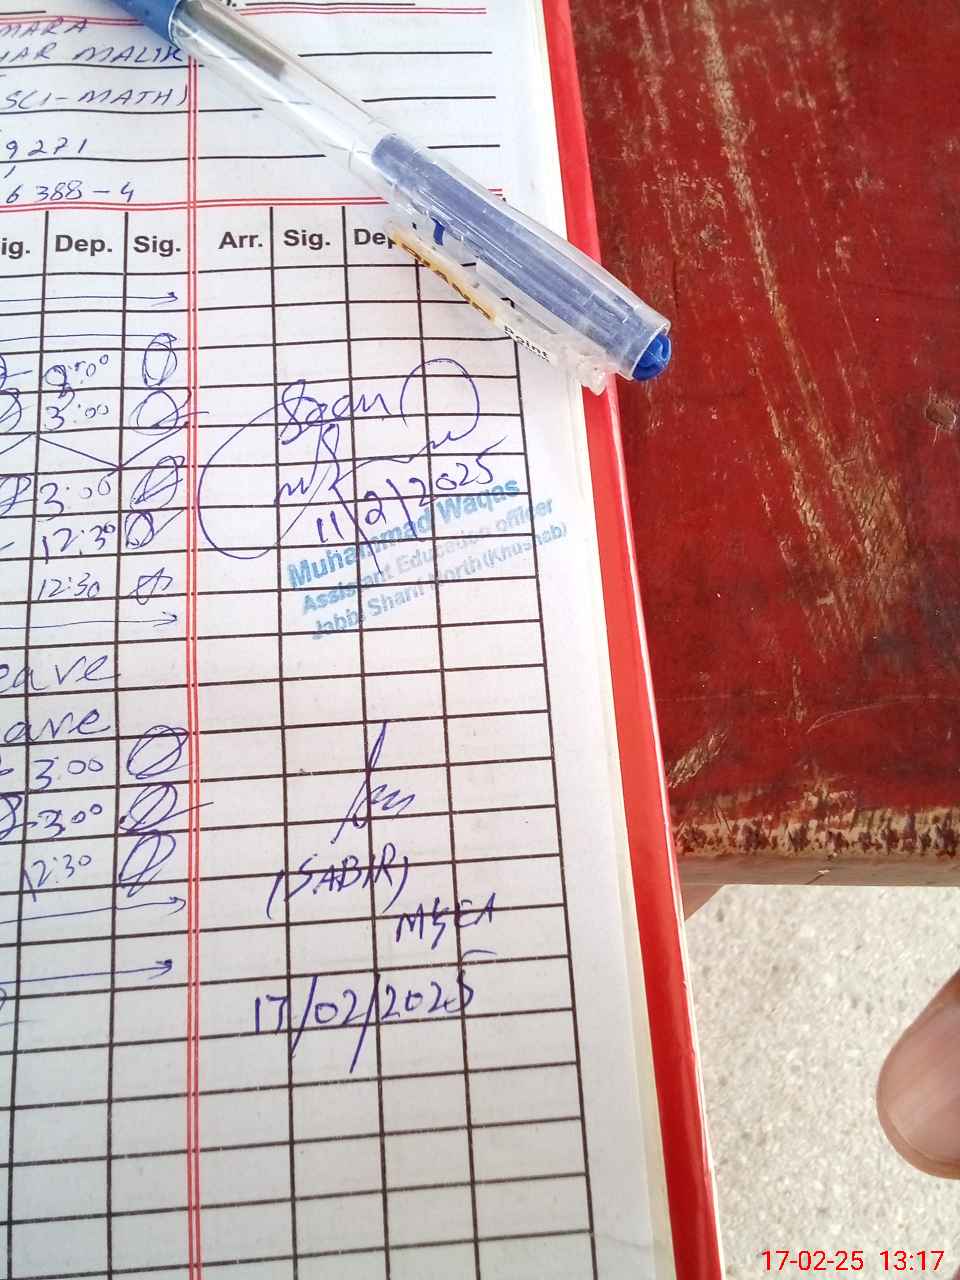 MARA
HAR MALIK
SCI-MATH)
9271
6388-4
ig. Dep. Sig. Arr. Sig. De
3:00
Seen
3:00
11/2/2025
12:30
Muhammad Waqas
Assistant Education officer
Jabbi Sharif North (Khushab)
12:30
eave
ave
3:00
3:00
12:30
(SABIR)
MEA
17/02/2025
Point
17-02-25 13:17